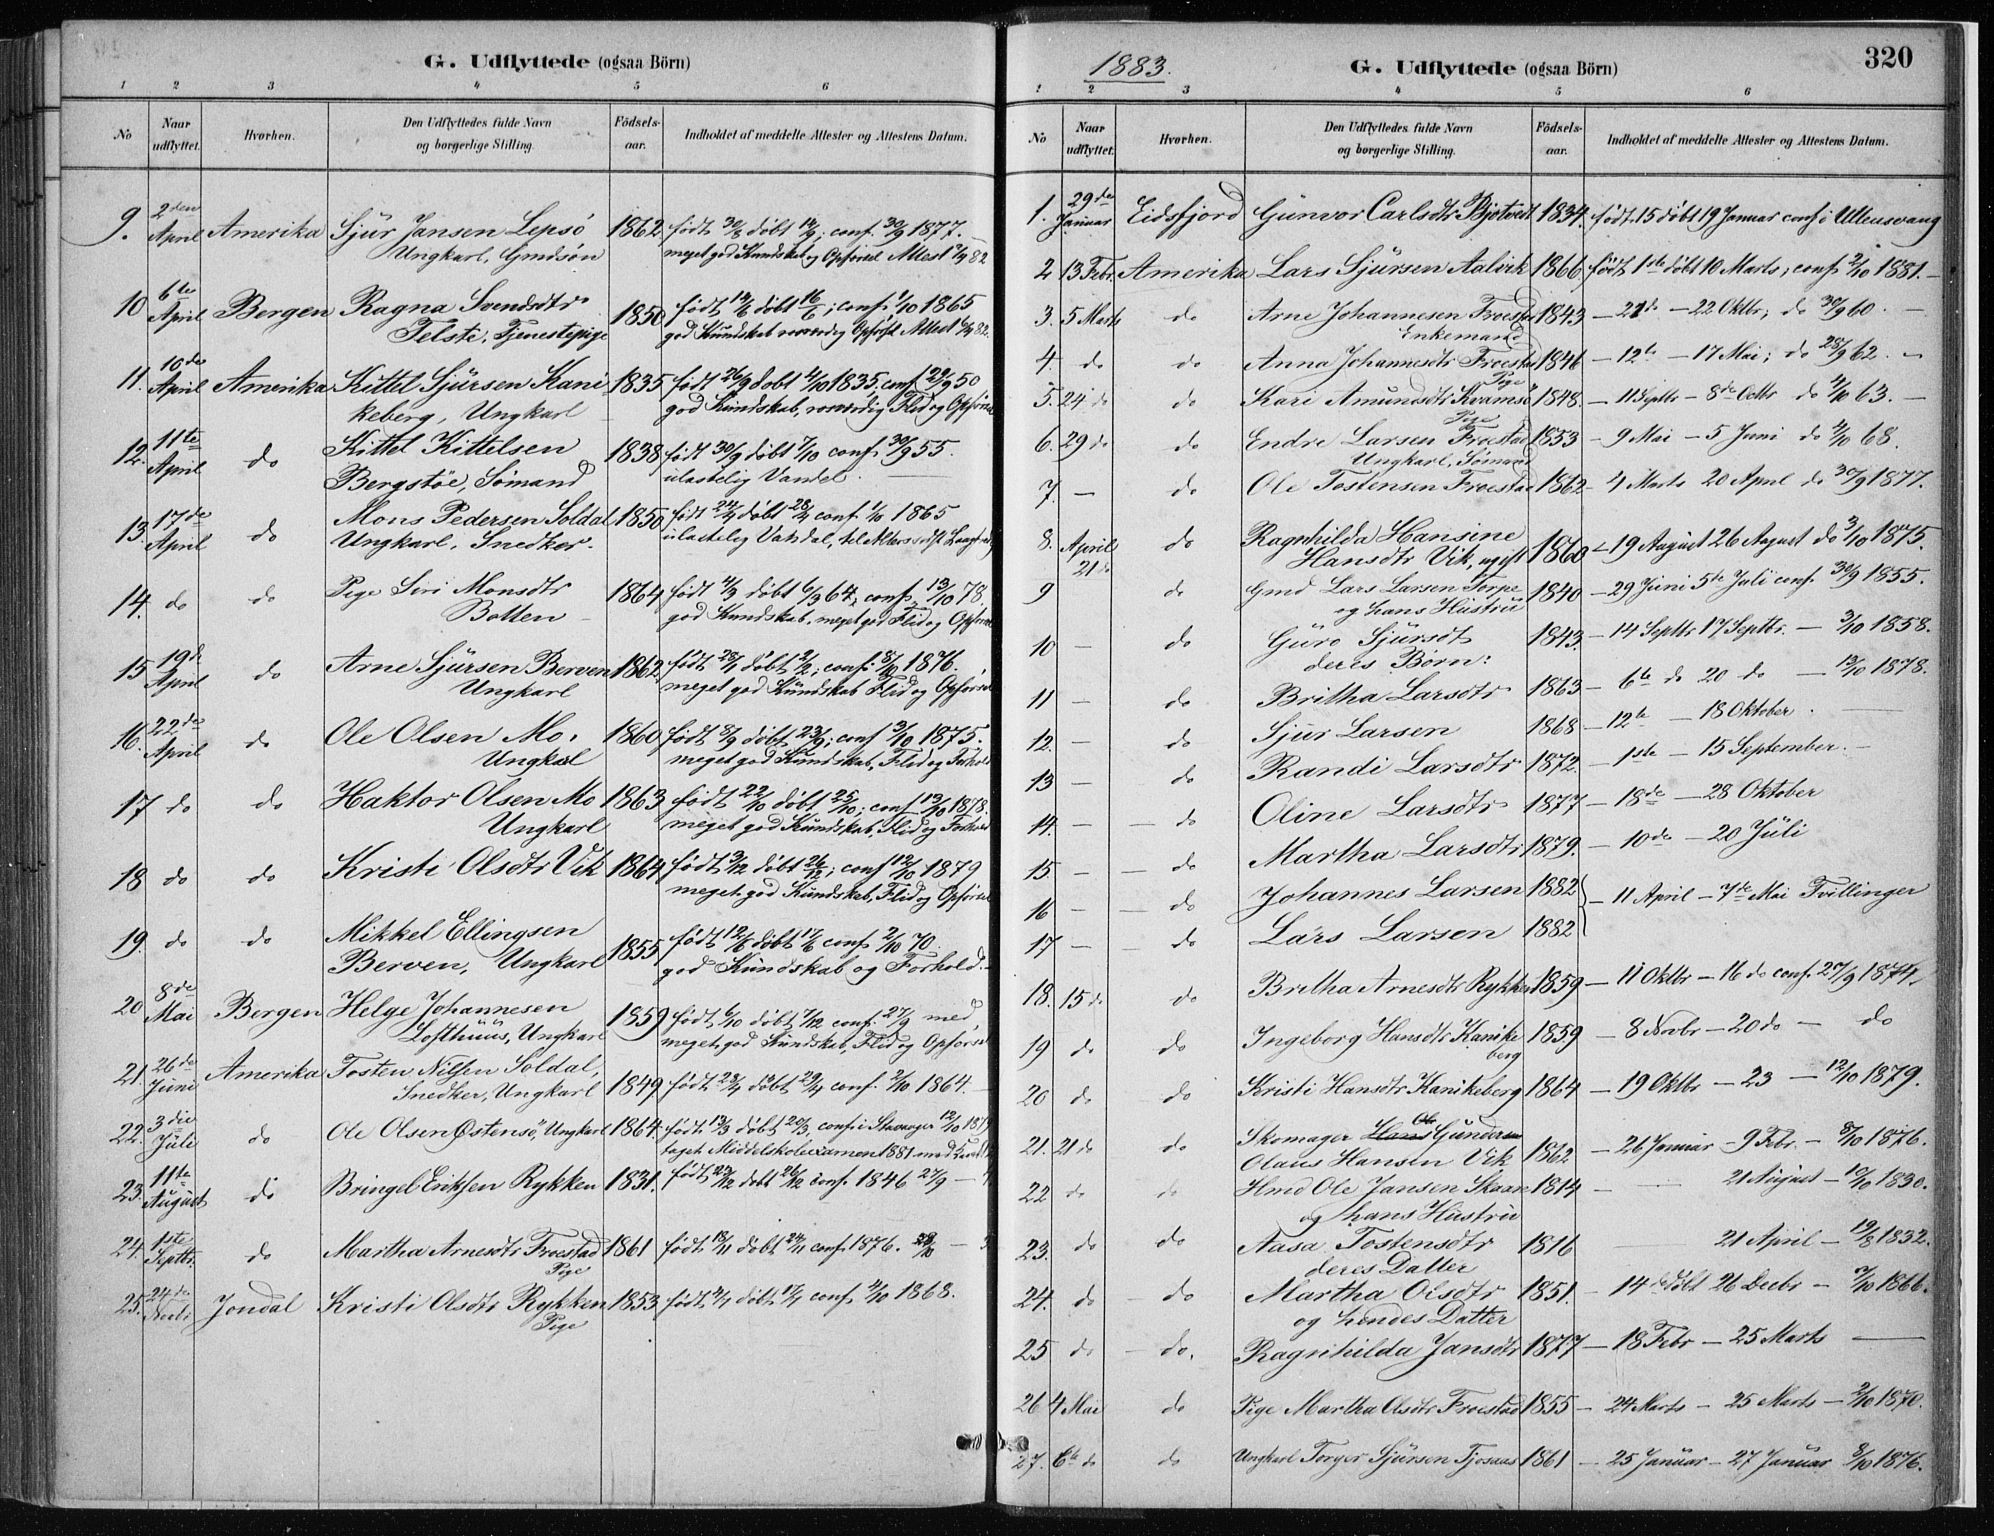 G. Udflyttede (ogsaa Börn)
1 2 3 4 5 6
No
Naar udflyttet.
Hvorhen.
Den Udflyttedes fulde Navn og borgerlige Stilling.
Födsels-aar.
Indholdet af meddelte Attester og Attestens Datum.
9. 2den April Amerika Sjür Jansen Lepsö 1862 født 30/8 døbt 14/9; conf. 30/9 1877.
Ungkarl, Gmdsön meget god Kundskab og Opførsel Attest
10 6te April Bergen Ragna Svendsdtr 1850 født døbt 16/6; conf. 1/10 1865
Telste, Tjenestepige god Kundskab
11. 10de April Amerika Kittel Sjürsen Kani 1835 født 26/9 døbt 4/10 1835. conf. 29/9 50
keberg, Ungkarl god Kundskab, Flid og Opførsel
12. 11te April do Kittel Kittelsen 1838 født 30/9 døbt 7/10 conf. 30/9 55.
Bergstöe, Sømand ulastelig Vandel.
13. 17de April do Mons Pedersen Soldal 1850 født 24/4 døbt 28/4 conf. 1/10 1865
Ungkarl, Snedker. ulastelig
14. do do Pige Siri Monsdtr 1864 født 4/3 døbt 6/3 64, conf. 13/10 78.
Botten god Kundskab, meget god Flid og Opførsel
15 19de April do Arne Sjürsen Berven 1862 født 28/1 døbt 2/2; conf. 8/10 1876.
Ungkarl meget god Kundskab Flid og Opførsel
16. 22de April do Ole Olsen Mo. 1860 født 8/9 døbt 23/9; conf. 3/10 1875.
Ungkarl meget god Kundskab, Flid og Forhold
17 do do Haktor Olsen Mo 1863 født 22/10 døbt 25/10; conf. 13/10 1878.
Ungkarl meget god Kundskab, Flid og Forhold
18 do do Kristi Olsdtr Vik 1864 født 3/12 døbt 26/12; conf. 12/10 1879
meget god Kundskab, Flid og Opførsel
19. do do Mikkel Ellingsen 1855 født 12/6 døbt 17/6 conf. 2/10 70.
Berven, Ungkarl god Kundskab og Forhold.
20 8de Mai Bergen Helge Johannesen 1859 født 6/10 døbt 7/12 conf. 27/9 med
Lofthuus, Ungkarl meget god Kundskab, Flid og Opførsel
21. 26de Juni Amerika Tosten Nilsen Soldal, 1849 født 23/4 døbt 29/4 conf. 2/10 1864.
Snedker, Ungkarl
22. 3die Juli do Ole Olsen Östensö, Ungkarl 1864. født 13/3 døbt 20/3, conf. i Stavanger 12/10 1879
taget Middelskoleexamen 1881 med
23. 11te August do Bringel Eriksen Rykken 1831. født 23/12 døbt 26/12 conf. 1846 27/9
24. 1ste Septbr. do Martha Arnesdtr Froestad 1861 født 18/11 døbt 24/11 conf. 1876.
Pige
25. 24de Jondal Kristi Olsdtr Rykken 1853 født døbt 17/4 conf. 4/10 1868.
Pige
1883.
G. Udflyttede (ogsaa Börn)
320
1 2 3 4 5 6
No
Naar udflyttet.
Hvorhen.
Den Udflyttedes fulde Navn og borgerlige Stilling.
Födsels-aar.
Indholdet af meddelte Attester og Attestens Datum.
1. 29de Januar Eidsfjord Gunvor Carlsdtr Bjotveit 1834. født 15 døbt 19 Januar conf. i Ullensvang
2 13 Febr. Amerika Lars Sjürsen Aalvik 1866 født 1ste døbt 10 Marts; conf. 2/10 1881.
3. 5 Marts do Arne Johannesen Froestad 1843 – 21de – 22 Oktbr; do 30/9 60.
Enkemand
4. do do Anna Johannesdtr Froestad 1846 – 12te – 17 Mai; do 28/9 62.
Pige
5. 24 do do Kari Amundsdtr Kvamsö 1848. – 11 Septbr – 8de Octbr do 4/10 63.
Pige
6. 29 do do Endre Larsen Froestad 1853 – 9 Mai – 5 Juni do 4/10 68.
Ungkarl, Sømand
7. – do Ole Tostensen Froestad 1862 – 4 Marts 20 April do 30/9 1877.
8. April 21 do do Ragnhilda Hansine
Hansdtr Vik, ugift 1860 – 19 August 26 August do 3/10 1875.
9 do Gmd Lars Larsen Torpe 1840 – 29 Juni 5te Juli conf. 30/9 1855.
og hans Hustru
10 – do Guro Sjürsdt 1843. – 14 Septbr 17 Septbr. – 3/10 1858.
deres Børn:
11 – do Britha Larsdtr 1863 – 6te do 20 do – 13/10 1878.
12. – do Sjur Larsen 1868 – 12te – 18 Oktober.
13 – do Randi Larsdtr 1872 – 1ste – 15 September.
14. – do Oline Larsdtr 1877 – 18de – 28 Oktober
15 – do Martha Larsdtr 1879. – 10de – 20 Juli
16 – do Johannes Larsen 1882 – 11 April – 7de Mai Tvillinger
17 – do Lars Larsen 1882
18. 15 do do Britha Arnesdtr Rykken 1859 – 11 Oktbr – 16 do conf. 27/9 1874.
19 do do Ingeborg Hansdtr Kanike 1859 – 8 Novbr – 20 do – do
berg
20 do do Kristi Hansdtr Kanikeberg 1864 – 19 Oktbr – 23 – 12/10 1879.
21. 21 do do Skomager Hans Ole Gundersen
Olaus Hansen Vik 1862 – 26 Januar – 9 Febr. – 8/10 1876.
22 do do Hmd Ole Jansen Skaar 1814 – 21 August – 10/10 1830.
og hans Hustru
23. do do Aasa Tostensdtr 1816 21 April – 19/8 1832.
deres Datter
24. do do Martha Olsdtr 1851. – 14de døbt 26 Decbr – 7/10 1866.
og hendes Datter
25 do do. Ragnhilda Jansdtr 1877 – 18 Febr – 25 Marts
26 4 Mai do Pige Martha Olsdtr Froestad 1855 – 24 Marts – 25 Marts – 2/10 1870.
27. 6te do do Ungkarl Torger Sjürsen Tjosaas 1861 – 25 Januar – 27 Januar 8/10 1876.